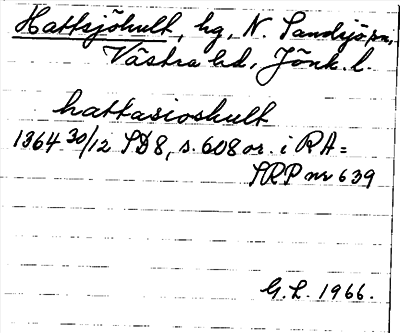 Hattsjöhult, hg, N. Sandsjö sn,
Västra hd, Jönk. l.
hattasioshult
1364 30/12 SD8, s. 608 or. i RA =
SRP nr 639
G.L. 1966.